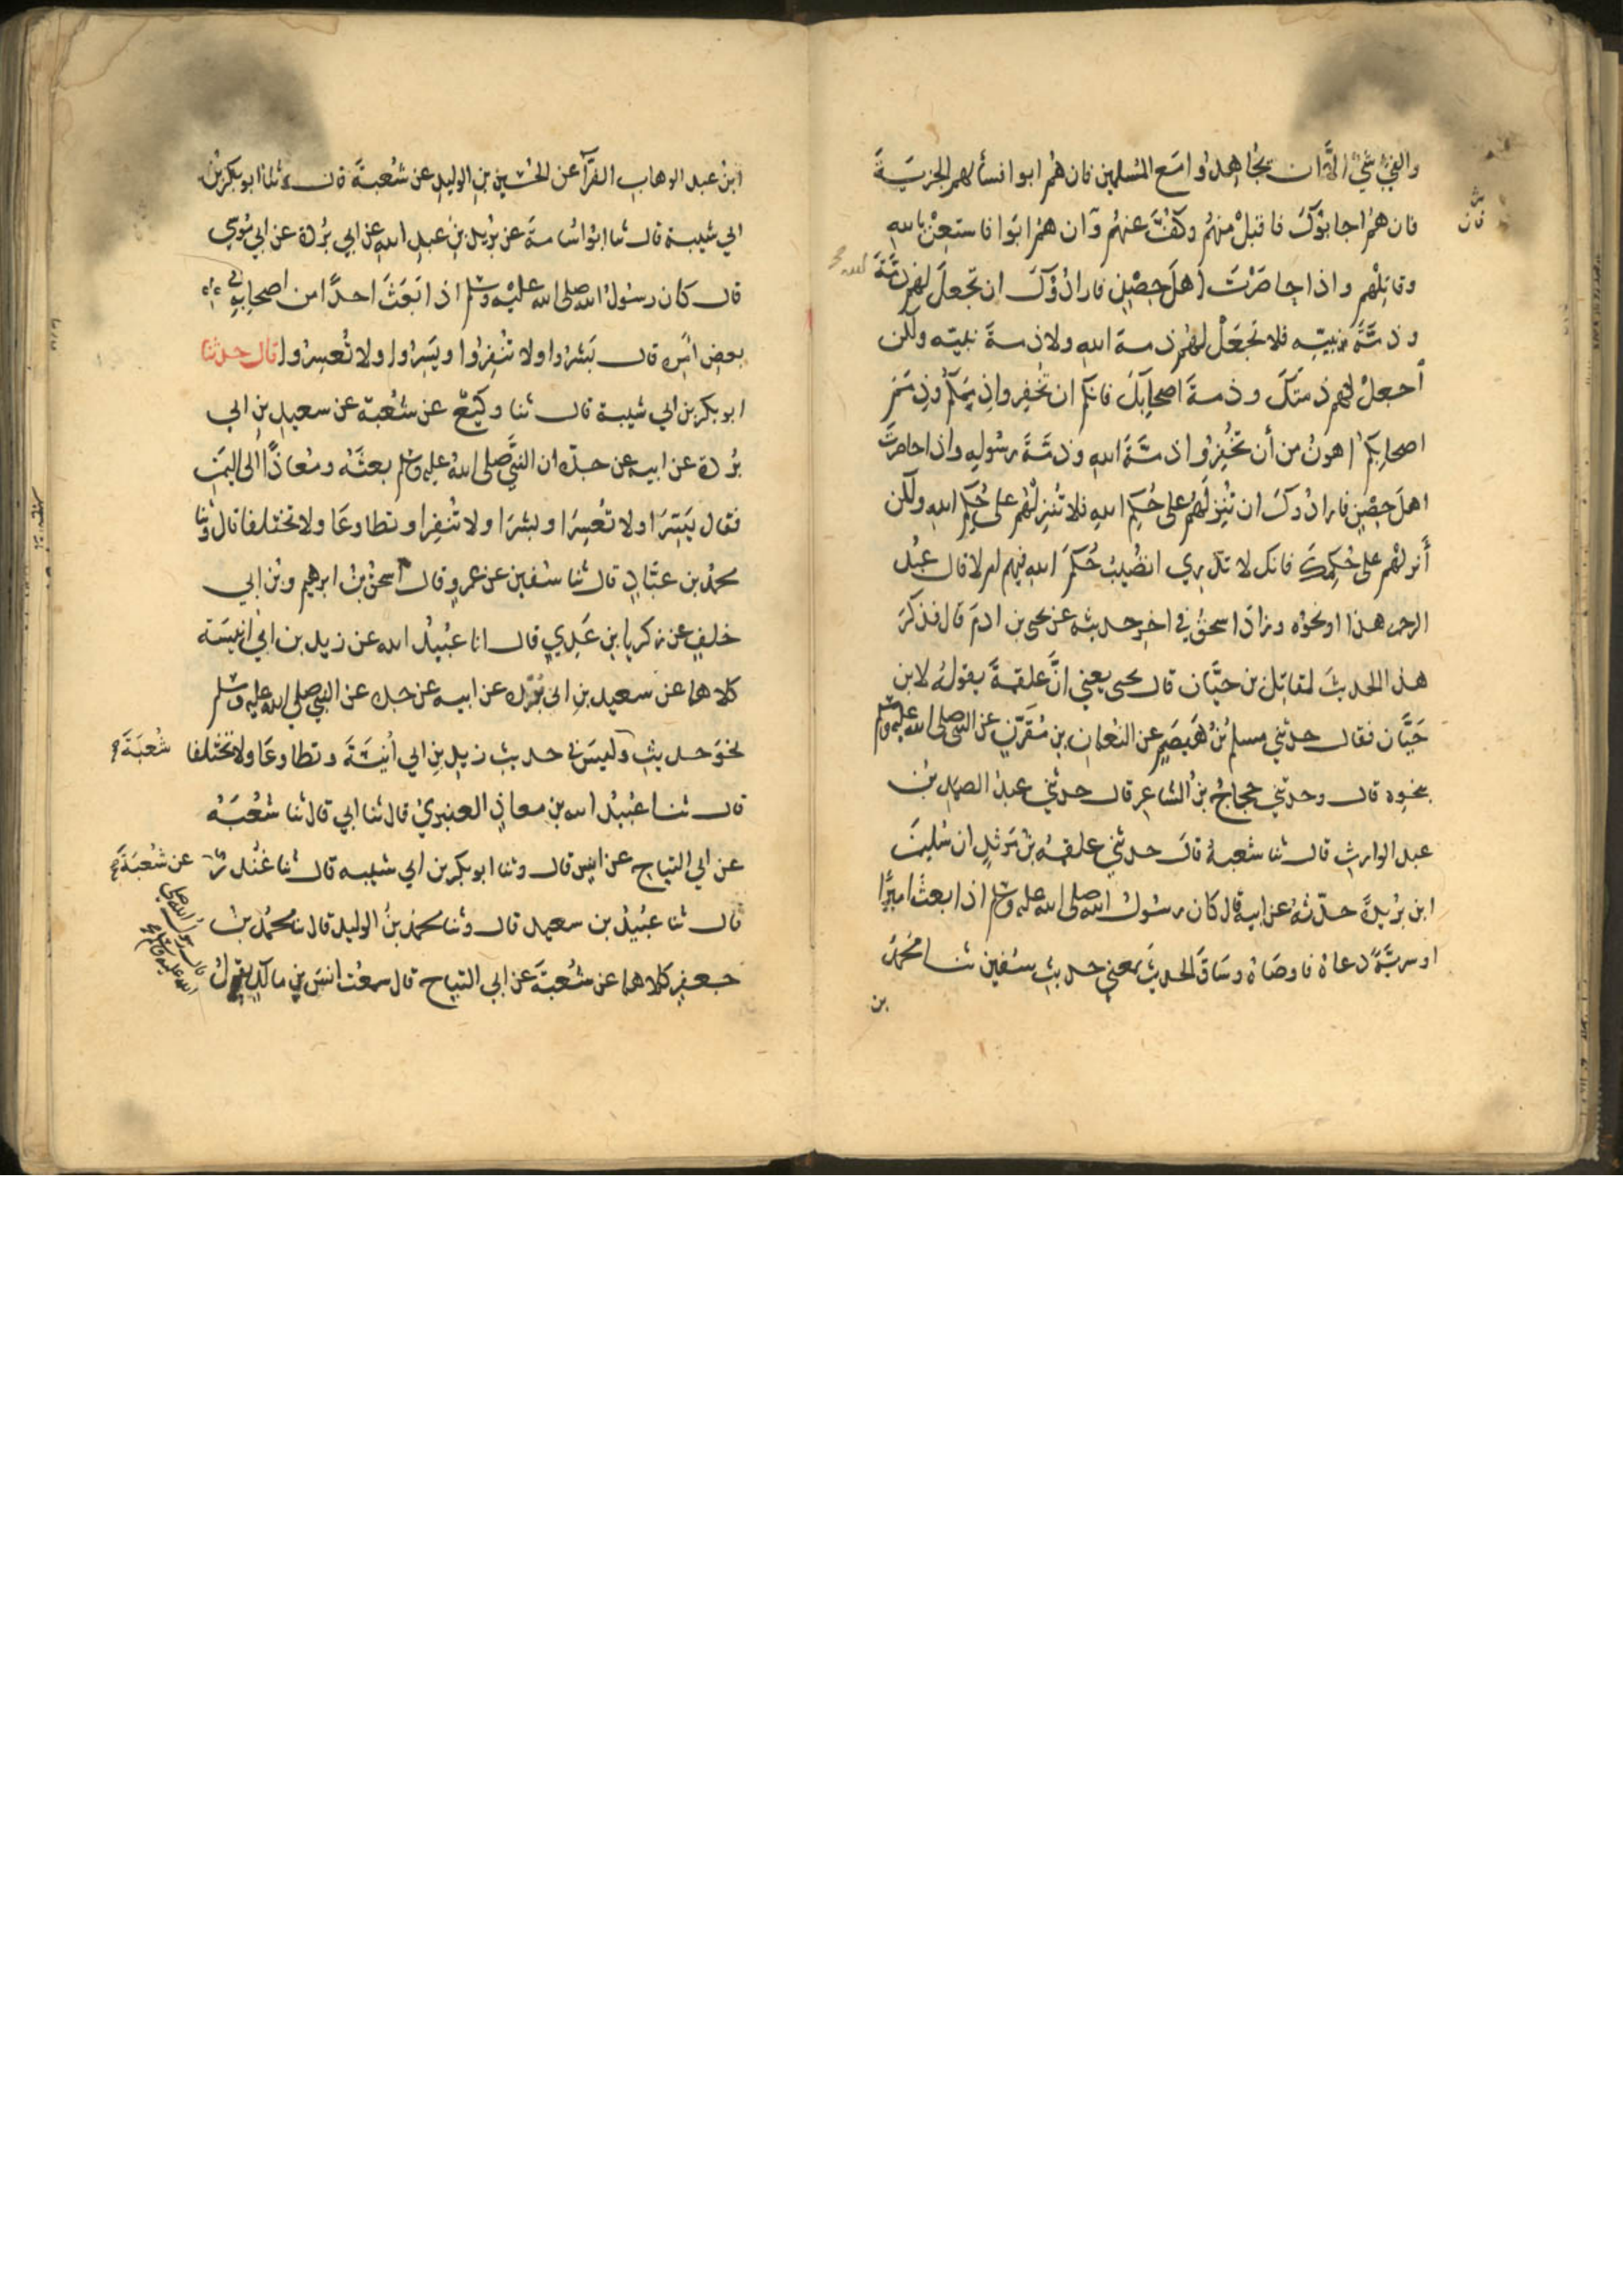 والفيء شيء الا ان يجاهدوا مع المسلمين فان هم ابوا فسألهم الجزية
فان هم اجابوك فاقبل منهم وكف عنهم وان هم ابوا فاستعن بالله
وقاتلهم واذا حاصرت اهل حصن فارادوك ان تجعل لهم ذمة الله
وذمة نبيه فلا تجعل لهم ذمة الله ولا ذمة نبيه ولكن
اجعل لهم ذمتك وذمة اصحابك فانكم ان تخفروا ذممكم وذمم
اصحابكم اهون من أن تخفروا ذمة الله وذمة رسوله واذا حاصرت
اهل حصن فارادوك ان تنزلهم على حكم الله فلا تنزلهم على حكم الله ولكن
أنزلهم على حكمك فانك لا تدري اتصيب حكم الله فيهم ام لا قال عبد
الرحمن هذا او نحوه وزاد اسحق في اخر حديثه عن يحيى بن ادم قال فذكرت
هذا الحديث لمقاتل بن حيان قال يحيى يعني ان علقمة يقوله لابن
حيان فقال حدثني مسلم بن هيصم عن النعمان بن مقرن عن النبي صلى الله عليه وسلم
بنحوه قال وحدثني حجاج بن الشاعر قال حدثني عبد الصمد بن
عبد الوارث قال ثنا شعبة قال حدثني علقمة بن مرثد ان سليمن
ابن بريدة حدثه عن ابيه قال كان رسول الله صلى الله عليه وسلم اذا بعث اميرًا
او سرية دعاه فاوصاه وساق الحديث بمعنى حديث سفين ثنا محمد
بن
ابن عبد الوهاب الفرآ عن الحسين بن الوليد عن شعبة قال ثنا ابو بكر بن
ابي شيبة قال ثنا ابو اسامة عن بريد بن عبد الله عن ابي بردة عن ابي موسى
قال كان رسول الله صلى الله عليه وسلم اذا بعث احدًا من اصحابه في
بعض امره قال بشروا ولا تنفروا ويسروا ولا تعسروا قال حدثنا
ابو بكر بن ابي شيبة قال ثنا وكيع عن شعبة عن سعيد بن ابي
بردة عن ابيه عن جده ان النبي صلى الله عليه وسلم بعثه ومعاذًا الى اليمن
فقال يسرا ولا تعسرا وبشرا ولا تنفرا وتطاوعا ولا تختلفا قال وثنا
محمد بن عباد قال ثنا سفين عن عمرو قال ح اسحق بن ابرهيم وبن ابي
خلف عن زكريا بن عدي قال انا عبيد الله عن زيد بن ابي انيسة
كلاهما عن سعيد بن ابي بردة عن ابيه عن جده عن النبي صلى الله عليه وسلم
نحو حديث وليس في حديث زيد بن ابي أنيسة وتطاوعا ولا تختلفا شعبة
قال ثنا عبيد الله بن معاذ العنبري قال ثنا ابي قال ثنا شعبة
عن ابي التياح عن انس قال وثنا ابو بكر بن ابي شيبه قال ثنا عن شعبة
قال ثنا عبيد بن سعيد قال وثنا محمد بن الوليد قال نا محمد بن
جعفر كلاهما عن شعبة عن ابي التياح قال سمعت انس بن مالك يقول
قال رسول الله صلى
الله عليه وسلم